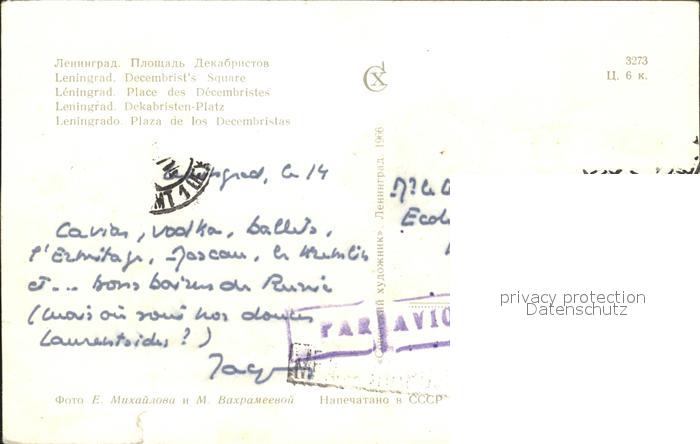 Ленинград. Площадь Декабристов
Leningrad. Decembrist's Square
Léningrad. Place des Décembristes
Leningrad. Dekabristen-Platz
Leningrado. Plaza de los Decembristas
3273
Ц. 6 к.
Leningrad, le 14
Caviar, vodka, ballets,
l'Ermitage, Moscou, le Kremlin
et... bons baisers de Russie
(mais où sont nos douces
Laurentides ?)
Ecole
художник». Ленинград. 1966
PAR AVIO
privacy protection
Datenschutz
Фото Е. Михайлова и М. Вахрамеевой
Напечатано в СССР